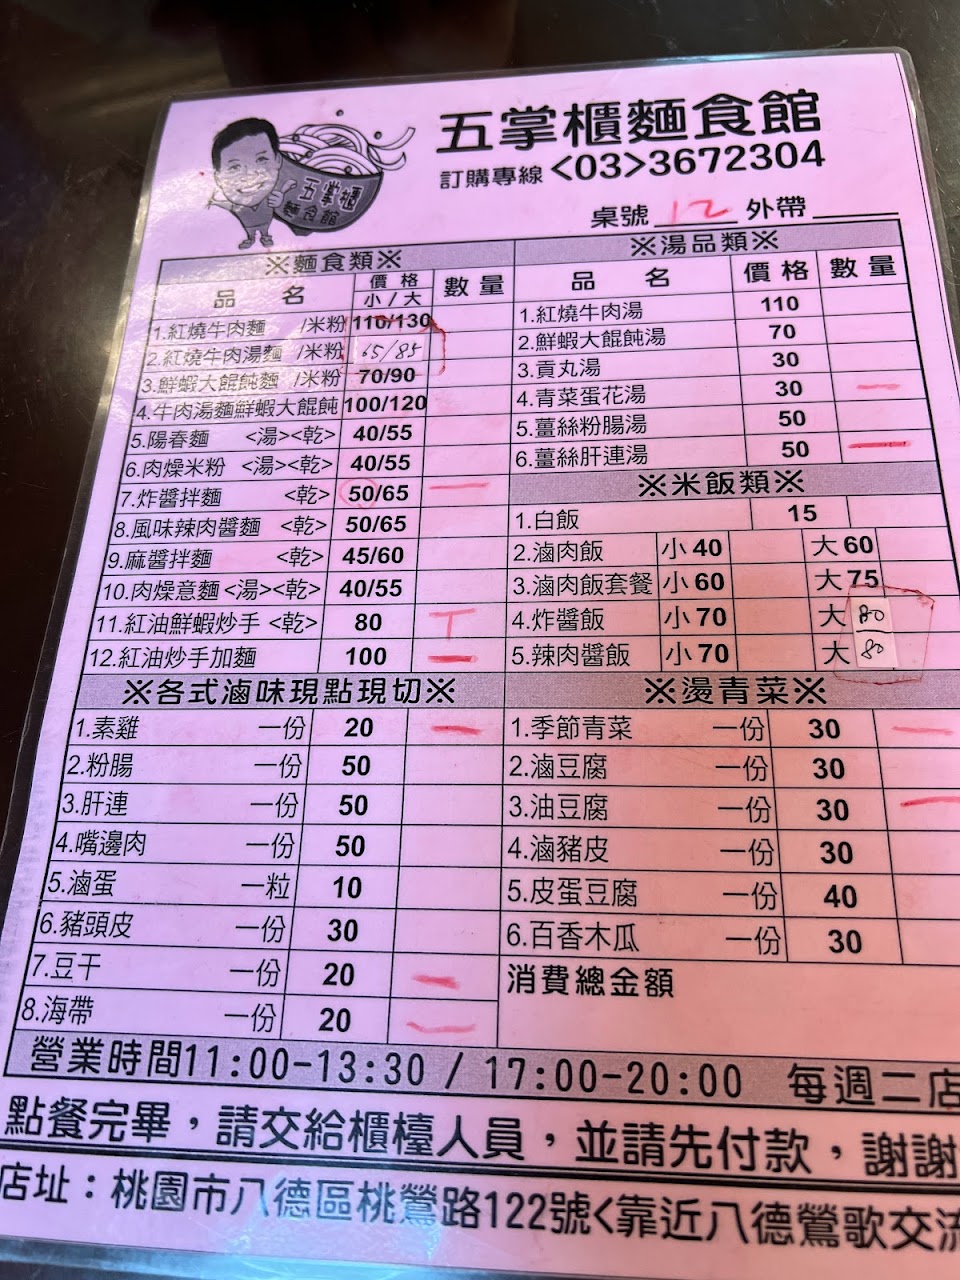 五掌櫃麵食館
五掌櫃
麵食館
訂購專線<03>3672304
桌號 12 外帶
※麵食類※
品 名 價格 小/大 數量
1.紅燒牛肉麵 /米粉 110/130
2.紅燒牛肉湯麵 /米粉 65/85
3.鮮蝦大餛飩麵 /米粉 70/90
4.牛肉湯麵鮮蝦大餛飩 100/120
5.陽春麵 <湯><乾> 40/55
6.肉燥米粉 <湯><乾> 40/55
7.炸醬拌麵 <乾> 50/65 一
8.風味辣肉醬麵 <乾> 50/65
9.麻醬拌麵 <乾> 45/60
10.肉燥意麵<湯><乾> 40/55
11.紅油鮮蝦炒手 <乾> 80 T
12.紅油炒手加麵 100 一
※湯品類※
品 名 價格 數量
1.紅燒牛肉湯 110
2.鮮蝦大餛飩湯 70
3.貢丸湯 30
4.青菜蛋花湯 30 一
5.薑絲粉腸湯 50
6.薑絲肝連湯 50 一
※米飯類※
1.白飯 15
2.滷肉飯 小40 大60
3.滷肉飯套餐 小60 大75
4.炸醬飯 小70 大80
5.辣肉醬飯 小70 大80
※各式滷味現點現切※
1.素雞 一份 20 一
2.粉腸 一份 50
3.肝連 一份 50
4.嘴邊肉 一份 50
5.滷蛋 一粒 10
6.豬頭皮 一份 30
7.豆干 一份 20 一
8.海帶 一份 20 一
※燙青菜※
1.季節青菜 一份 30 一
2.滷豆腐 一份 30
3.油豆腐 一份 30 一
4.滷豬皮 一份 30
5.皮蛋豆腐 一份 40
6.百香木瓜 一份 30
消費總金額
營業時間11:00-13:30 / 17:00-20:00 每週二店
點餐完畢，請交給櫃檯人員，並請先付款，謝謝
店址：桃園市八德區桃鶯路122號<靠近八德鶯歌交流